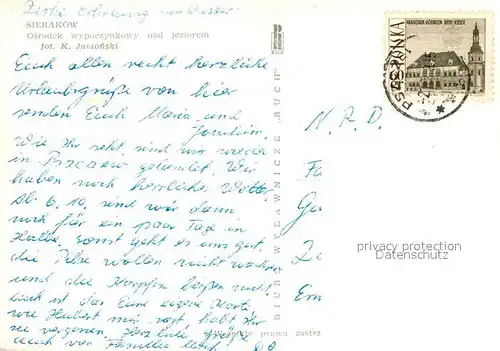 SIERAKÓW
Ośrodek wypoczynkowy nad jeziorem
fot. K. Jabłoński
Euch allen recht herzliche
Urlaubsgrüße von hier
senden Euch Maria und
Joachim.
Wie Ihr seht, sind wir wieder
in gelandet. Wir
haben noch herrliches Wetter
Ab 6.10. sind wir dann
noch für ein paar Tage in
Halle, sonst geht es uns gut,
die Pilze wollen nicht wachsen
und die Karpfen beißen nicht
auch ist das Eure eigene Karte
wie Hubert mir sagt habt Ihr
sie vergessen. Herzliche Grüße
auch von Familie
BIURO WYDAWNICZE „RUCH”
prawa zastrz
POLSKA
N. R. D.
Fa
Ga
Em
privacy protection
Datenschutz